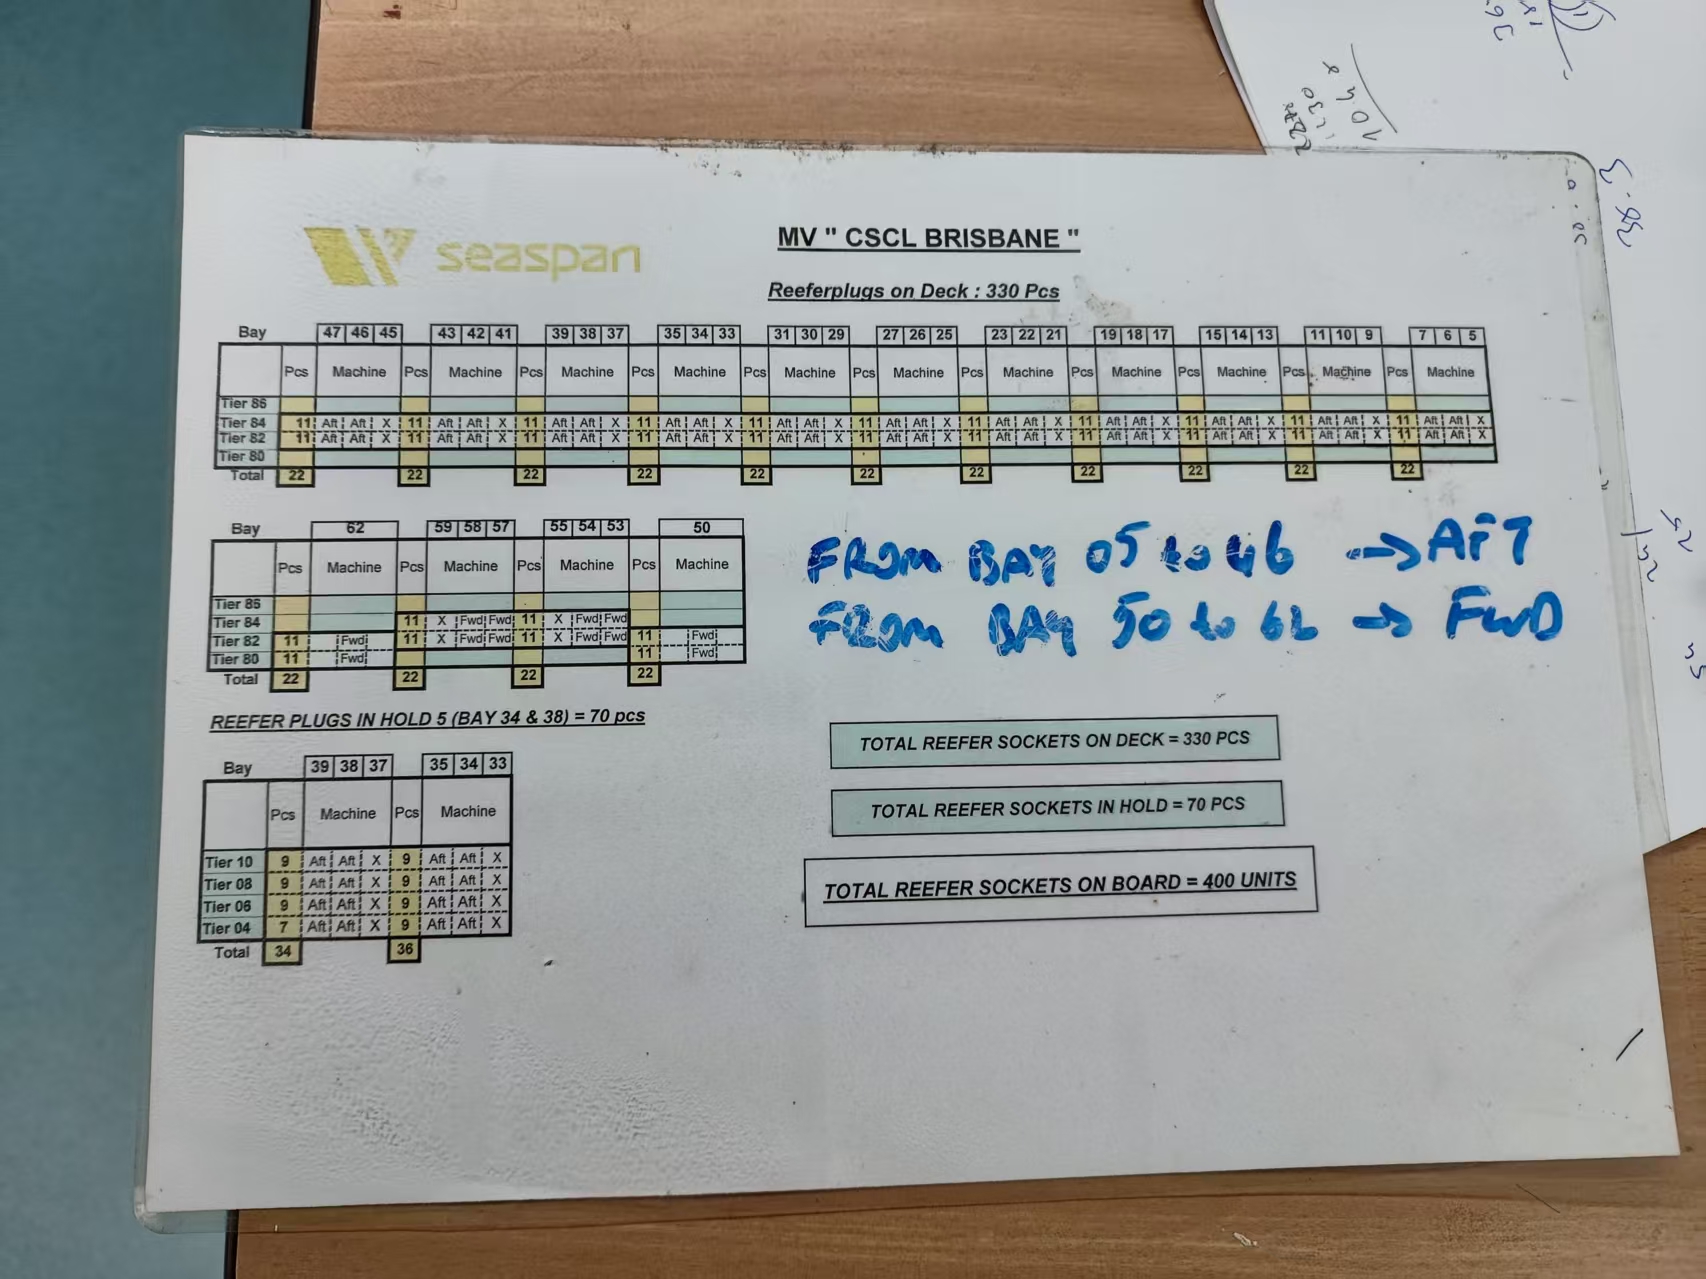 seaspan
MV " CSCL BRISBANE "
Reeferplugs on Deck : 330 Pcs
Bay 47 46 45 43 42 41 39 38 37 35 34 33 31 30 29 27 26 25 23 22 21 19 18 17 15 14 13 11 10 9 7 6 5
Pcs Machine Pcs Machine Pcs Machine Pcs Machine Pcs Machine Pcs Machine Pcs Machine Pcs Machine Pcs Machine Pcs Machine Pcs Machine
Tier 86
Tier 84 11 Aft Aft X 11 Aft Aft X 11 Aft Aft X 11 Aft Aft X 11 Aft Aft X 11 Aft Aft X 11 Aft Aft X 11 Aft Aft X 11 Aft Aft X 11 Aft Aft X 11 Aft Aft X
Tier 82 11 Aft Aft X 11 Aft Aft X 11 Aft Aft X 11 Aft Aft X 11 Aft Aft X 11 Aft Aft X 11 Aft Aft X 11 Aft Aft X 11 Aft Aft X 11 Aft Aft X 11 Aft Aft X
Tier 80
Total 22 22 22 22 22 22 22 22 22 22 22
Bay 62 59 58 57 55 54 53 50
Pcs Machine Pcs Machine Pcs Machine Pcs Machine
Tier 86
Tier 84 11 X Fwd Fwd 11 X Fwd Fwd
Tier 82 11 Fwd 11 X Fwd Fwd 11 X Fwd Fwd 11 Fwd
Tier 80 11 Fwd 11 Fwd
Total 22 22 22 22
FROM BAY 05 to 46 → AFT
FROM BAY 50 to 62 → FWD
REEFER PLUGS IN HOLD 5 (BAY 34 & 38) = 70 pcs
Bay 39 38 37 35 34 33
Pcs Machine Pcs Machine
Tier 10 9 Aft Aft X 9 Aft Aft X
Tier 08 9 Aft Aft X 9 Aft Aft X
Tier 06 9 Aft Aft X 9 Aft Aft X
Tier 04 7 Aft Aft X 9 Aft Aft X
Total 34 36
TOTAL REEFER SOCKETS ON DECK = 330 PCS
TOTAL REEFER SOCKETS IN HOLD = 70 PCS
TOTAL REEFER SOCKETS ON BOARD = 400 UNITS